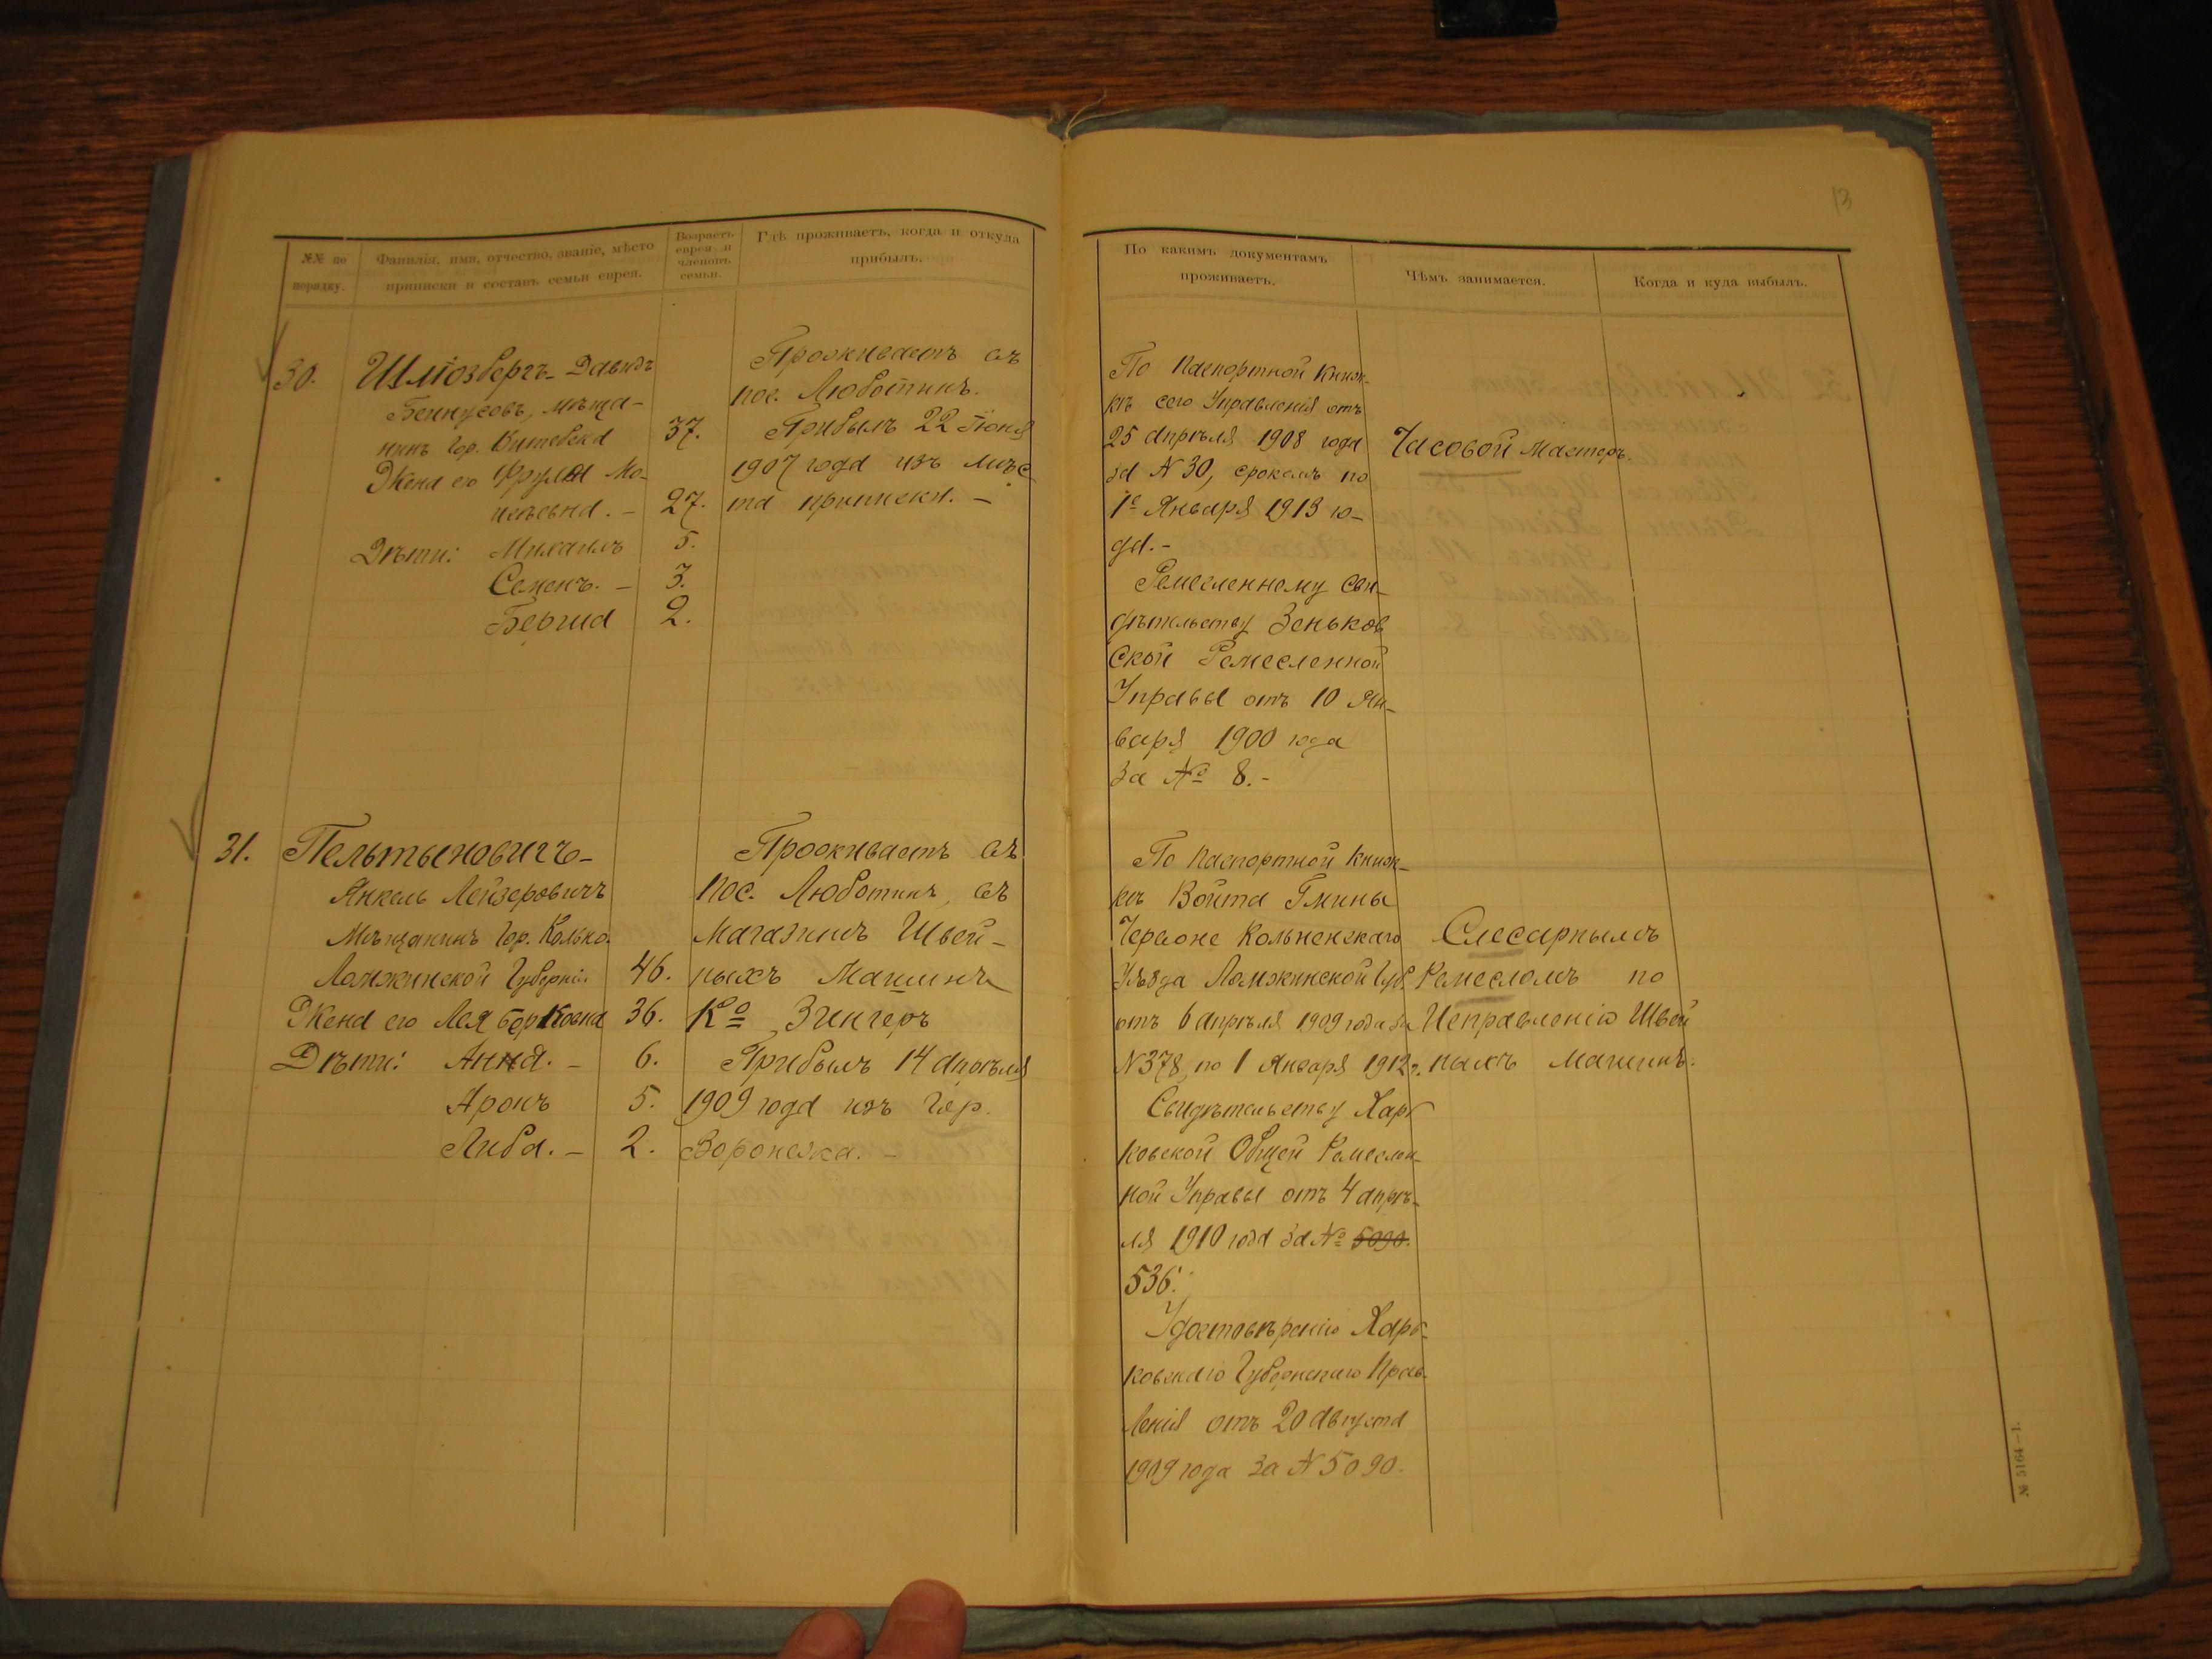 13
№№ по порядку.
Фамилія, имя, отчество, званіе, мѣсто приписки и составъ семьи еврея.
Возрастъ еврея и членовъ семьи.
Гдѣ проживаетъ, когда и откуда прибылъ.
По какимъ документамъ проживаетъ.
Чѣмъ занимается.
Когда и куда выбылъ.
30.
Шліозбергъ- Давидъ
мѣща-
нинъ гор. Витебска
37.
Жена его Фрума Мо-
исѣевна. –
27.
Дѣти: Михаилъ
5.
Семенъ. –
3.
Берша
2.
Проживаетъ въ
пос. Люботинъ.
Прибылъ 22 Іюня
1907 года изъ мѣс
та приписки. –
По Паспортной Книж-
кѣ сего Управленія отъ
25 апрѣля 1908 года
за N 30, срокомъ по
1е Января 1913 го-
да.-
Ремесленному сви-
дѣтельству Зеньков
ской Ремесленной
Управы отъ 10 Ян-
варя 1900 года
за № 8.-
Часовой мастеръ.
31.
Пельтыновичъ-
Янкель Лейзеровичъ
Мѣщанинъ Гор. Кольно.
Ломжинской Губерніи
46.
Жена его Лея Берковна
36.
Дѣти: Анна. –
6.
Аронъ
5.
Либа. –
2.
Проживаетъ въ
пос. Люботинъ, въ
Магазинѣ Швей-
ныхъ Машинъ
Ко Зингеръ
Прибылъ 14 апрѣля
1909 года изъ Гор.
Воронежа. –
По Паспортной Книж-
кѣ Войта Гмины
Червоне Кольненскаго
Уѣзда Ломжинской Губ.
отъ 6 апрѣля 1909 года за
N 378, по 1 Января 1912 г.
Свидѣтельству Харь
ковской Общей Ремеслен-
ной Управы отъ 4 апрѣ-
ля 1910 года за № 5090.
536.
Удостовѣренію Харь-
ковскаго Губернскаго Прав-
ленія отъ 20 августа
1909 года за N 5090.
Слесарнымъ
Ремесломъ по
Исправленію Швей
ныхъ машинъ.
№ 5164–1.